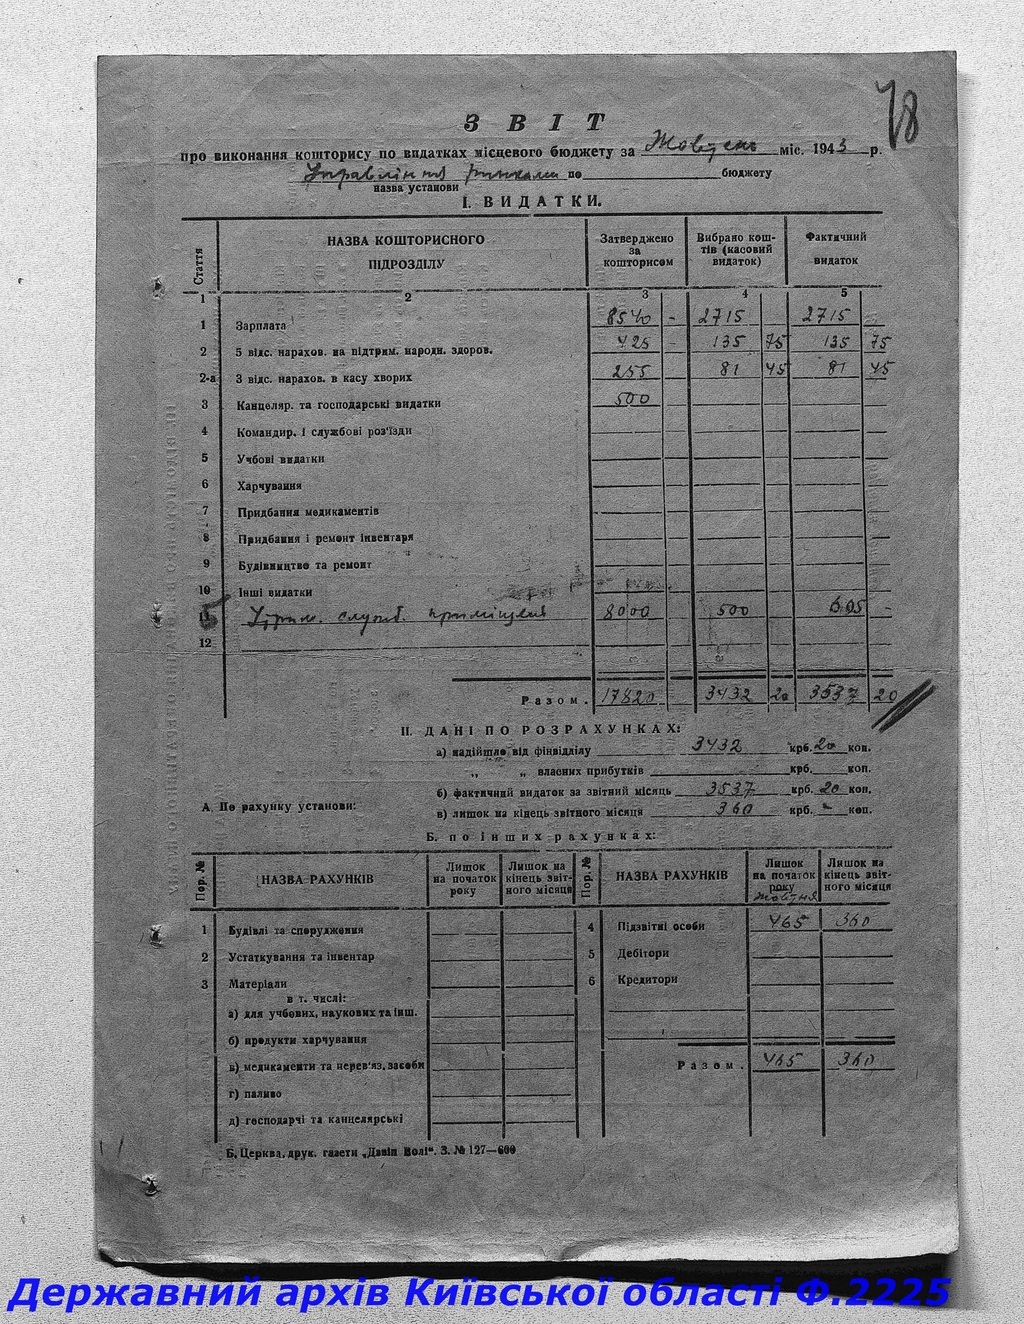 78
ЗВІТ
про виконання кошторису по видатках місцевого бюджету за Жовтень міс. 1943 р.
Управління ринками по бюджету
назва установи
І. ВИДАТКИ.
Стаття НАЗВА КОШТОРИСНОГО ПІДРОЗДІЛУ Затверджено за кошторисом Вибрано кош- тів (касовий видаток) Фактичний видаток
1 2 3 4 5
1 Зарплата 8540 - 2715 2715
2 5 відс. нарахов. на підтрим. народн. здоров. 425 - 135 75 135 75
2-а 3 відс. нарахов. в касу хворих 255 81 45 81 45
3 Канцеляр. та господарські видатки 500
4 Командир. і службові роз'їзди
5 Учбові видатки
6 Харчування
7 Придбання медикаментів
8 Придбання і ремонт інвентаря
9 Будівництво та ремонт
10 Інші видатки
Утрим. служб. приміщення 8000 500 605 -
12
Разом. 17820 - 3432 20 3537 20
ІІ. ДАНІ ПО РОЗРАХУНКАХ:
а) надійшло від фінвідділу 3432 крб. 20 коп.
„ „ власних прибутків крб. коп.
б) фактичний видаток за звітний місяць 3537 крб. 20 коп.
А. По рахунку установи:
в) лишок на кінець звітного місяця 360 крб. - коп.
Б. по інших рахунках:
Пор. № НАЗВА РАХУНКІВ Лишок на початок року Лишок на кінець звіт- ного місяця Пор. № НАЗВА РАХУНКІВ Лишок на початок року жовтня Лишок на кінець звіт- ного місяця
1 Будівлі та спорудження 4 Підзвітні особи 465 360
2 Устаткування та інвентар 5 Дебітори
3 Матеріали 6 Кредитори
в т. числі:
а) для учбових, наукових та інш.
б) продукти харчування
Разом. 465 360
в) медикаменти та перев'яз. засоби
г) паливо
д) господарчі та канцелярські
Б. Церква, друк. газети „Дзвін Волі". З. № 127—600
Державний архів Київської області Ф.2225